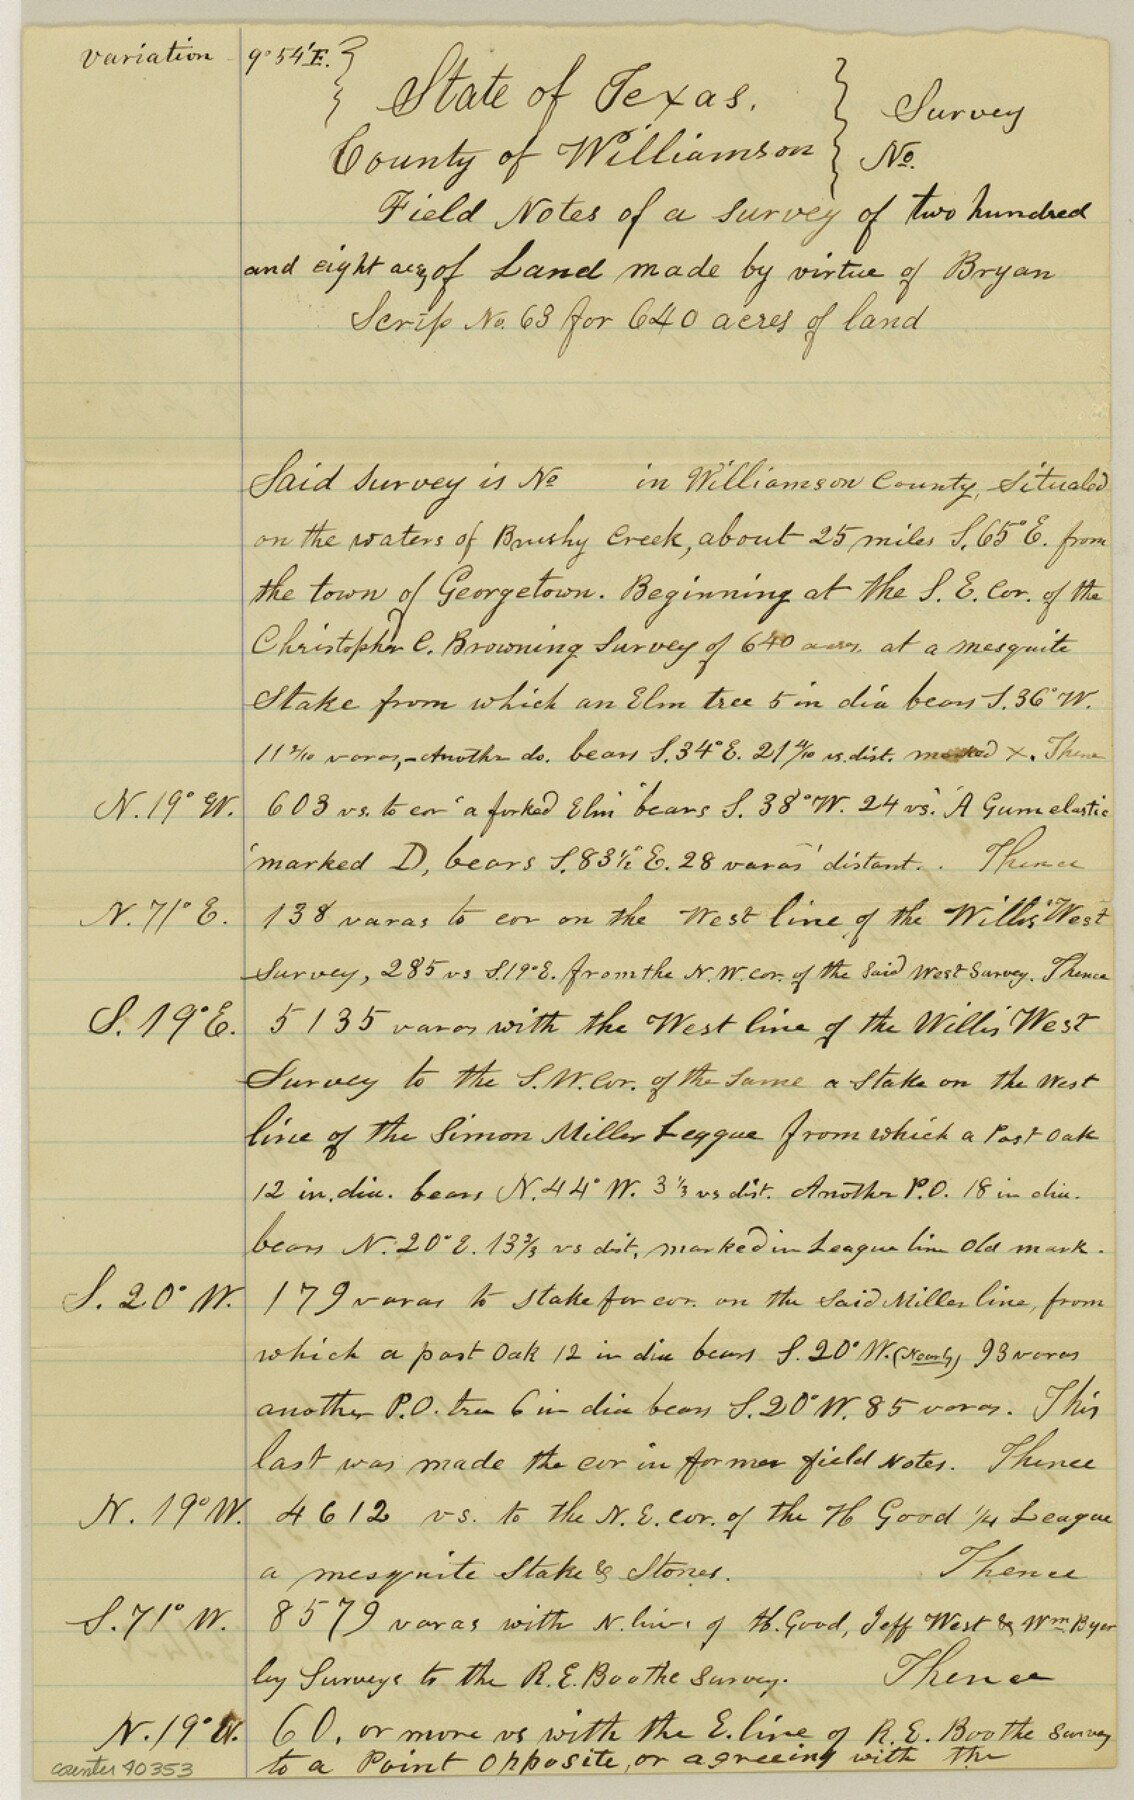 variation 9°54'E.
State of Texas.
County of Williamson
Survey
No.
Field Notes of a survey of two hundred
and eight acs of Land made by virtue of Bryan
Scrip No. 63 for 640 acres of land
Said survey is No in Williamson County, situated
on the waters of Brushy Creek, about 25 miles S. 65° E. from
the town of Georgetown. Beginning at the S. E. Cor. of the
Christopher C. Browning Survey of 640 acres. at a mesquite
Stake from which an Elm tree 5 in dia bears S. 36° W.
11 varas, - Another do. bears S. 34° E. 21 4/10 vs. dist. marked X. Thence
N. 19° W. 603 vs. to cor a forked Elm bears S. 38° W. 24 vs. A Gum elastic
marked D, bears S. 83 1/2° E. 28 varas distant. Thence
N. 71° E. 138 varas to cor on the West line of the Willis West
Survey, 285 vs S. 19° E. from the N. W. cor. of the said West Survey. Thence
S. 19° E. 5135 varas with the West line of the Willis West
Survey to the S. W. Cor. of the Same a Stake on the West
line of the Simon Miller League from which a Post Oak
12 in. dia. bears N. 44° W. 3 1/3 vs dist. Another P.O. 18 in dia.
bears N. 20° E. 13 2/3 vs dist, marked in League line old mark.
S. 20° W. 179 varas to stake for cor. on the said Miller line, from
which a post Oak 12 in dia bears S. 20° W. (Nearly) 93 varas
another P.O. tree 6 in dia bears S. 20° W. 85 varas. This
last was made the cor in former field Notes. Thence
N. 19° W. 4612 vs. to the N. E. cor. of the H Good 1/4 League
a mesquite Stake & Stones. Thence
S. 71° W. 8579 varas with N. line of H. Good, Jeff West & Wm. Byer
ley Surveys to the R. E. Boothe survey. Thence
N. 19° W. 60, or more vs with the E. line of R. E. Boothe survey
to a Point opposite, or agreeing with the
counter 40353